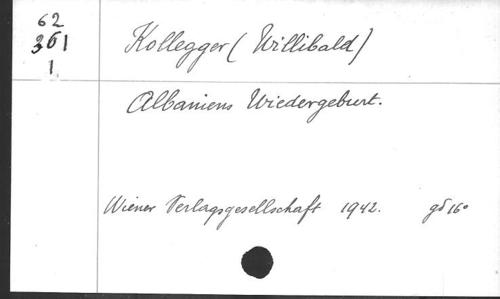 62
361
1.
Kollegger (Willibald)
Albaniens Wiedergeburt.
Wiener Verlagsgesellschaft 1942. gd 16°